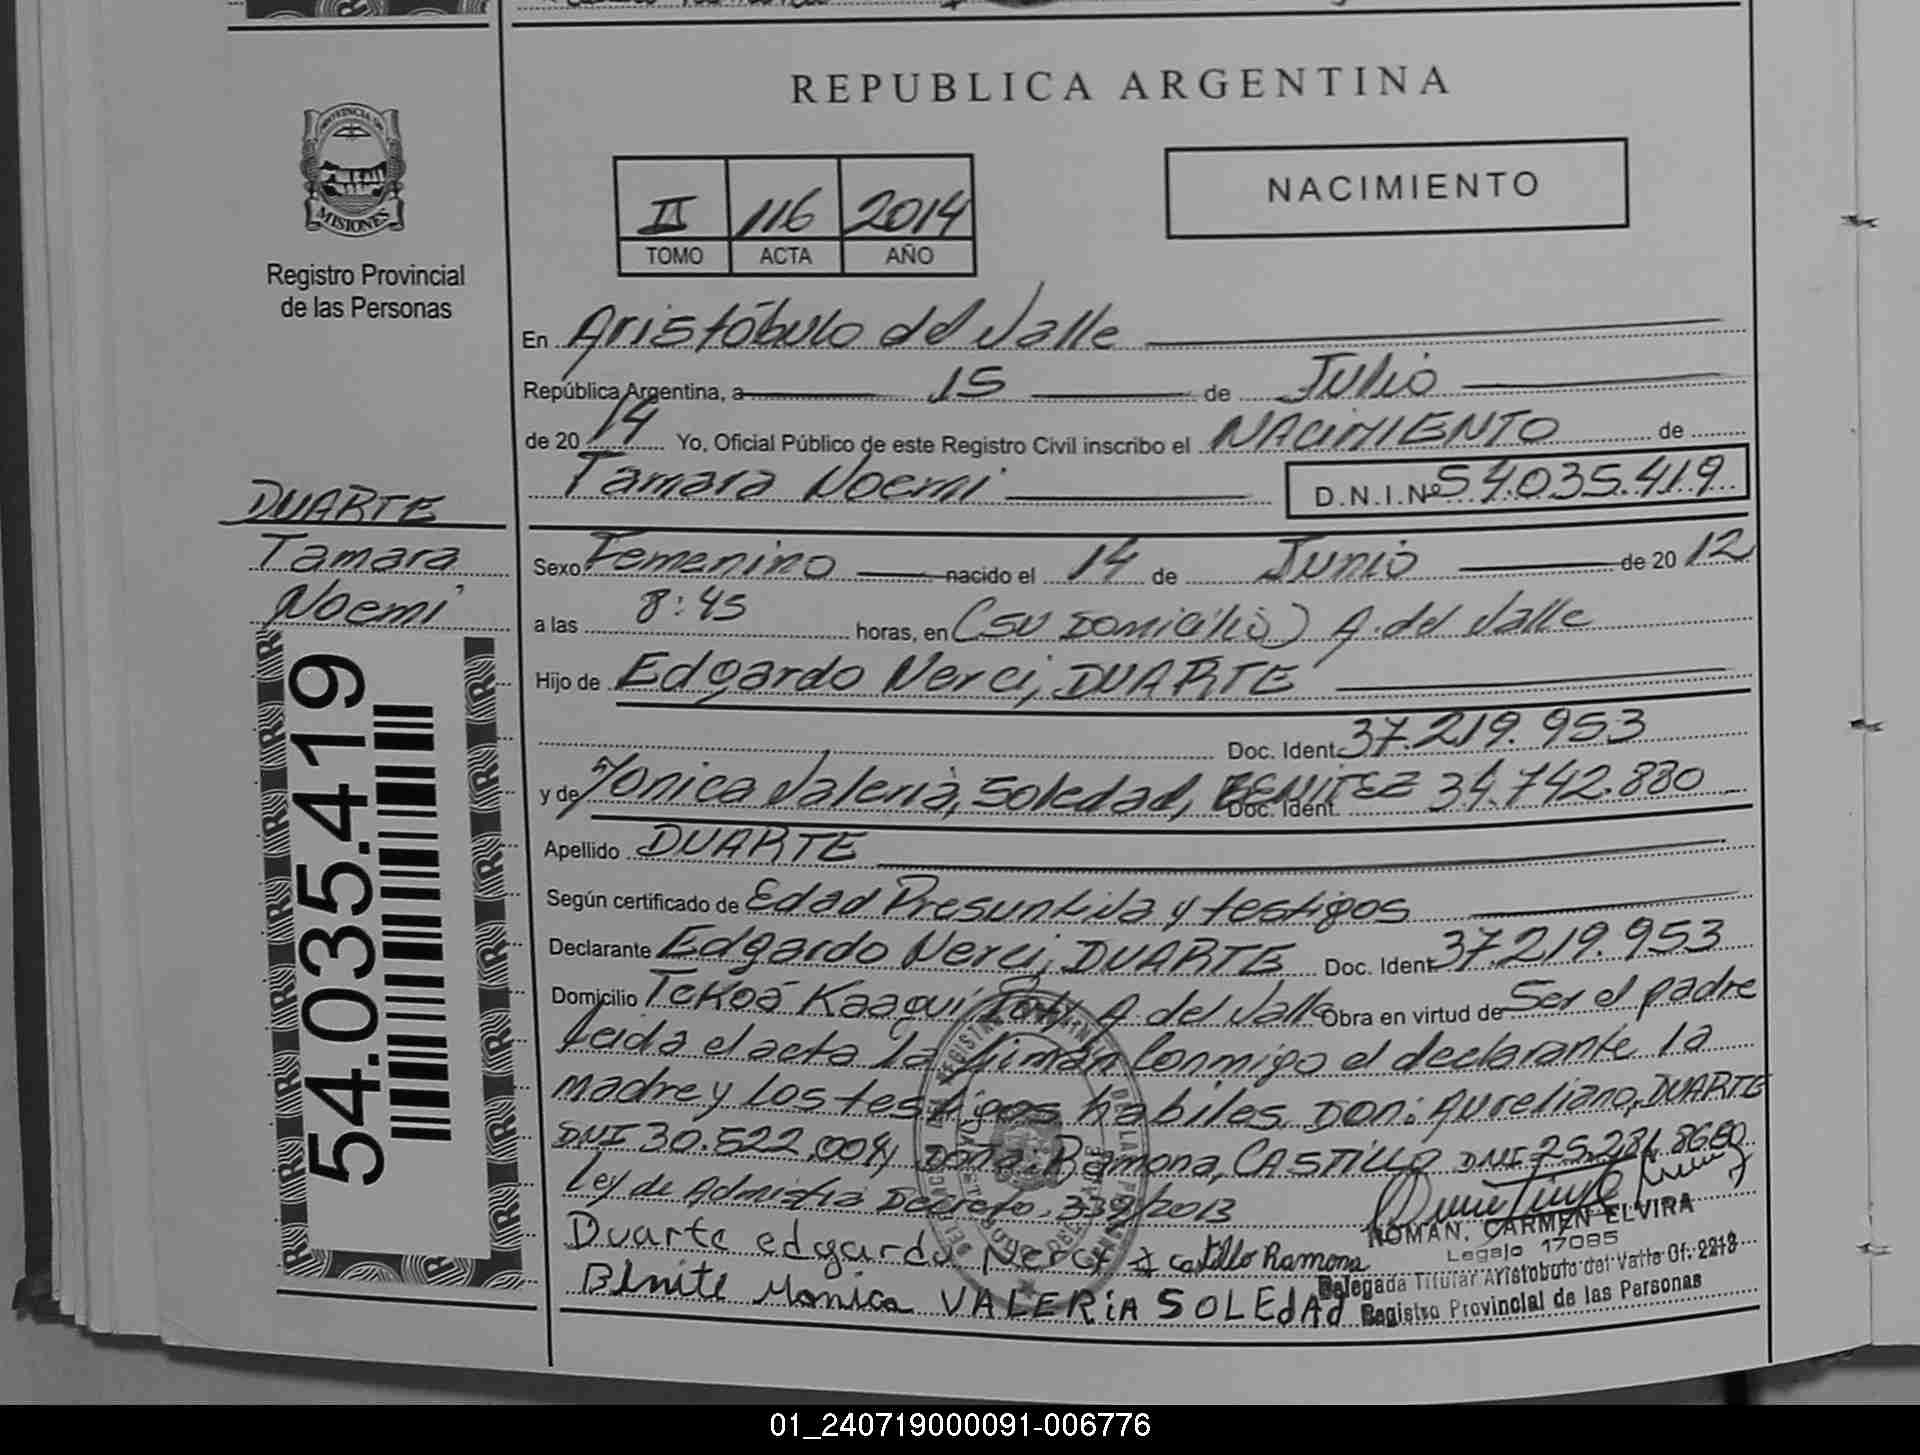 REPUBLICA ARGENTINA
PROVINCIA DE
MISIONES
Registro Provincial
de las Personas
II 116 2014
TOMO ACTA AÑO
NACIMIENTO
En Aristóbulo del Valle
República Argentina, a 15 de Julio
de 20 14 Yo, Oficial Público de este Registro Civil inscribo el NACIMIENTO de
Tamara Noemi D.N.I.Nº 54.035.419
DUARTE
Tamara
Noemi
54.035.419
Sexo Femenino nacido el 14 de Junio de 20 12
a las 8:45 horas, en (su Domicilio) A. del Valle
Hijo de Edgardo Nerci, DUARTE
Doc. Ident. 37.219.953
y de Monica Valeria, Soledad, BENITEZ Doc. Ident. 34.742.880
Apellido DUARTE
Según certificado de Edad Presuntiva y testigos
Declarante Edgardo Nerci, DUARTE Doc. Ident. 37.219.953
Domicilio Tekoá Kaagui Poty A. del Valle Obra en virtud de Ser el padre
Leida el acta la firman Conmigo el declarante la
madre y Los testigos habiles Don: Aureliano, DUARTE
DNI 30.522.004, Doña: Ramona, CASTILLO DNI
Ley de Admistia Decreto. 339/2013
Duarte edgardo Nercy Castillo Ramona
ROMAN, CARMEN ELVIRA
Legajo 17085
Benite Monica VALERiA SOLEdAd
Delegada Titular Aristobulo del Valle Of. 2213
Registro Provincial de las Personas
01_240719000091-006776